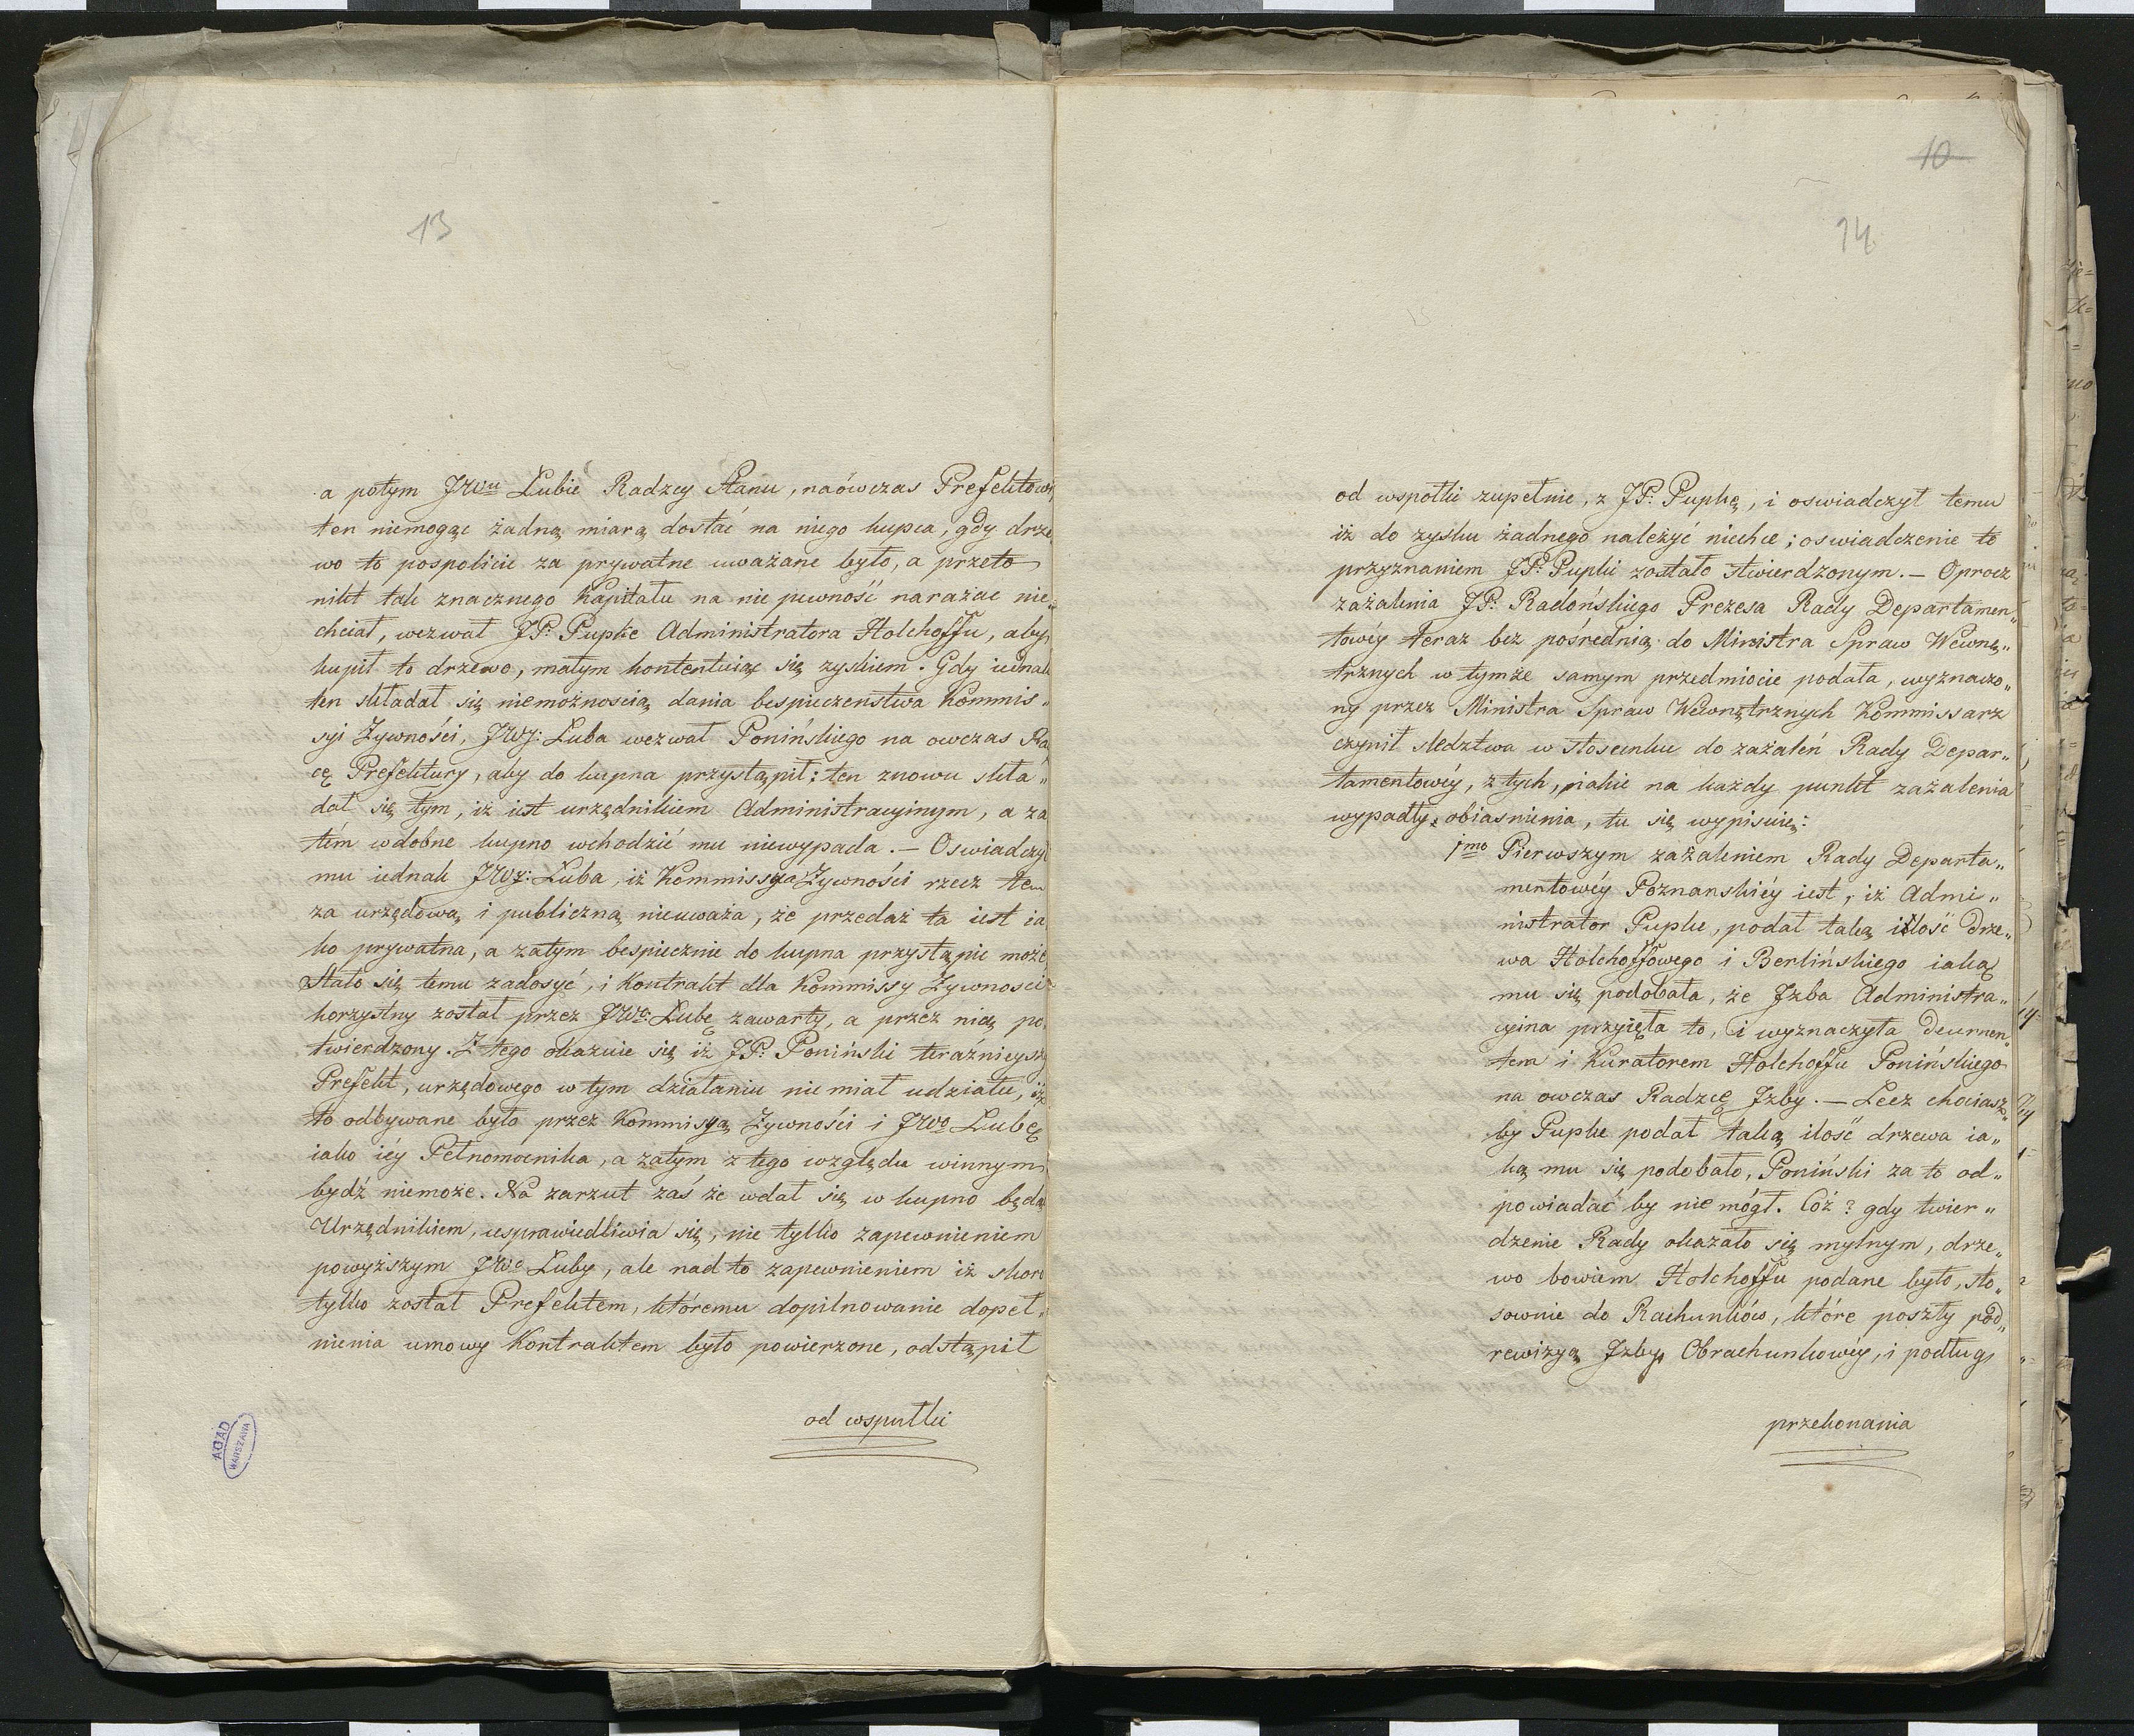 13
a potym JWu Łubie Radzcy Stanu, naówczas Prefektowi
ten niemogąc żadną miarą dostać na niego kupca, gdy drze
wo to pospolicie za prywatne uważane było, a przeto
nikt tak znacznego Kapitału na nie pewność narażać nie„
chciał, wezwał JP: Pupke Administratora Holchoffu, aby
kupił to drzewo, małym kontentuiąc się zyskiem. Gdy iednak
ten składał się niemożnoscią dania bespieczenstwa Kommis„
syi Żywności, JWJ: Łuba wezwał Ponińskiego na owczas Ra
cę Prefektury, aby do kupna przystąpił; ten znowu skła„
dał się tym, iż iest urzędnikiem Administracyinym, a za
tém w dobne kupno wchodzić mu niewypada. — Oswiadczył
mu iednak JWJ: Łuba, iż Kommissya Żywności rzecz tem
za urzędową i publiczną nieuważa, że przedaż ta iest ia
ko prywatna, a zatym bespiecznie do kupna przystąpic może
Stało się temu zadosyć, i Kontrakt dla Kommissy Żywności
korzystny został przez JWo: Łubę zawarty, a przez nią po
twierdzony. Z tego okazuie się iż JP: Poniński teraźnieyszy
Prefekt, urzędowego w tym działaniu nie miał udziału, iż
to odbywane było przez Kommisyą Żywności i JWo Łubę
iako iéy Pełnomocnika, a zatym z tego względu winnym
bydź niemoże. Na zarzut zaś że wdał się w kupno będąc
Urzędnikiem, usprawiedliwia się, nie tylko zapewnieniem
powyższym JWo Łuby, ale nad to zapewnieniem iż skoro
tylko został Prefektem, któremu dopilnowanie dopeł„
nienia umowy Kontraktem było powierzone, odstąpił
od wspułki
AGAD
WARSZAWA
10
14
od wspołki zupełnie, z JP: Pupkę, i oswiadczył temu
iż do zysku żadnego należyć niechce; oswiadczenie to
przyznaniem JP: Pupki zostało stwierdzonym. — Oprocz
zażalenia JP: Radońskiego Prezesa Rady Departamen„
towéy teraz bez pośrednią do Ministra Spraw Wewnę„
trznych w tymże samym przedmiocie podała, wyznaczo„
ny przez Ministra Spraw Wewnętrznych Kommissarz
czynił sledztwa w stosunku do zażaleń Rady Depar„
tamentowéy, z tych, iakie na każdy punkt zażalenia
wypadły obiasnienia, tu się wypisuie:
1mo Pierwszym zażaleniem Rady Departa„
mentowéy Poznanskiéy iest, iż Admi„
nistrator Pupke, podał taką ilość drze„
wa Holchoffowego i Berlińskiego iaką
mu się podobała, że Jzba Administra„
cyina przyięła to, i wyznaczyła Decernen„
tem i Kuratorem Holchoffu Ponińskiego
na owczas Radzcę Jzby. — Lecz chociasz„
by Pupke podał taką ilość drzewa ia„
ką mu się podobało, Poniński za to od„
powiadać by nie mógł. Cóż? gdy twier„
dzenie Rady okazało się mylnym, drze„
wo bowiem Holchoffu podane było, sto„
sownie do Rachunków, które poszły pod„
rewizyą Jzby Obrachunkowéy, i podług
przekonania